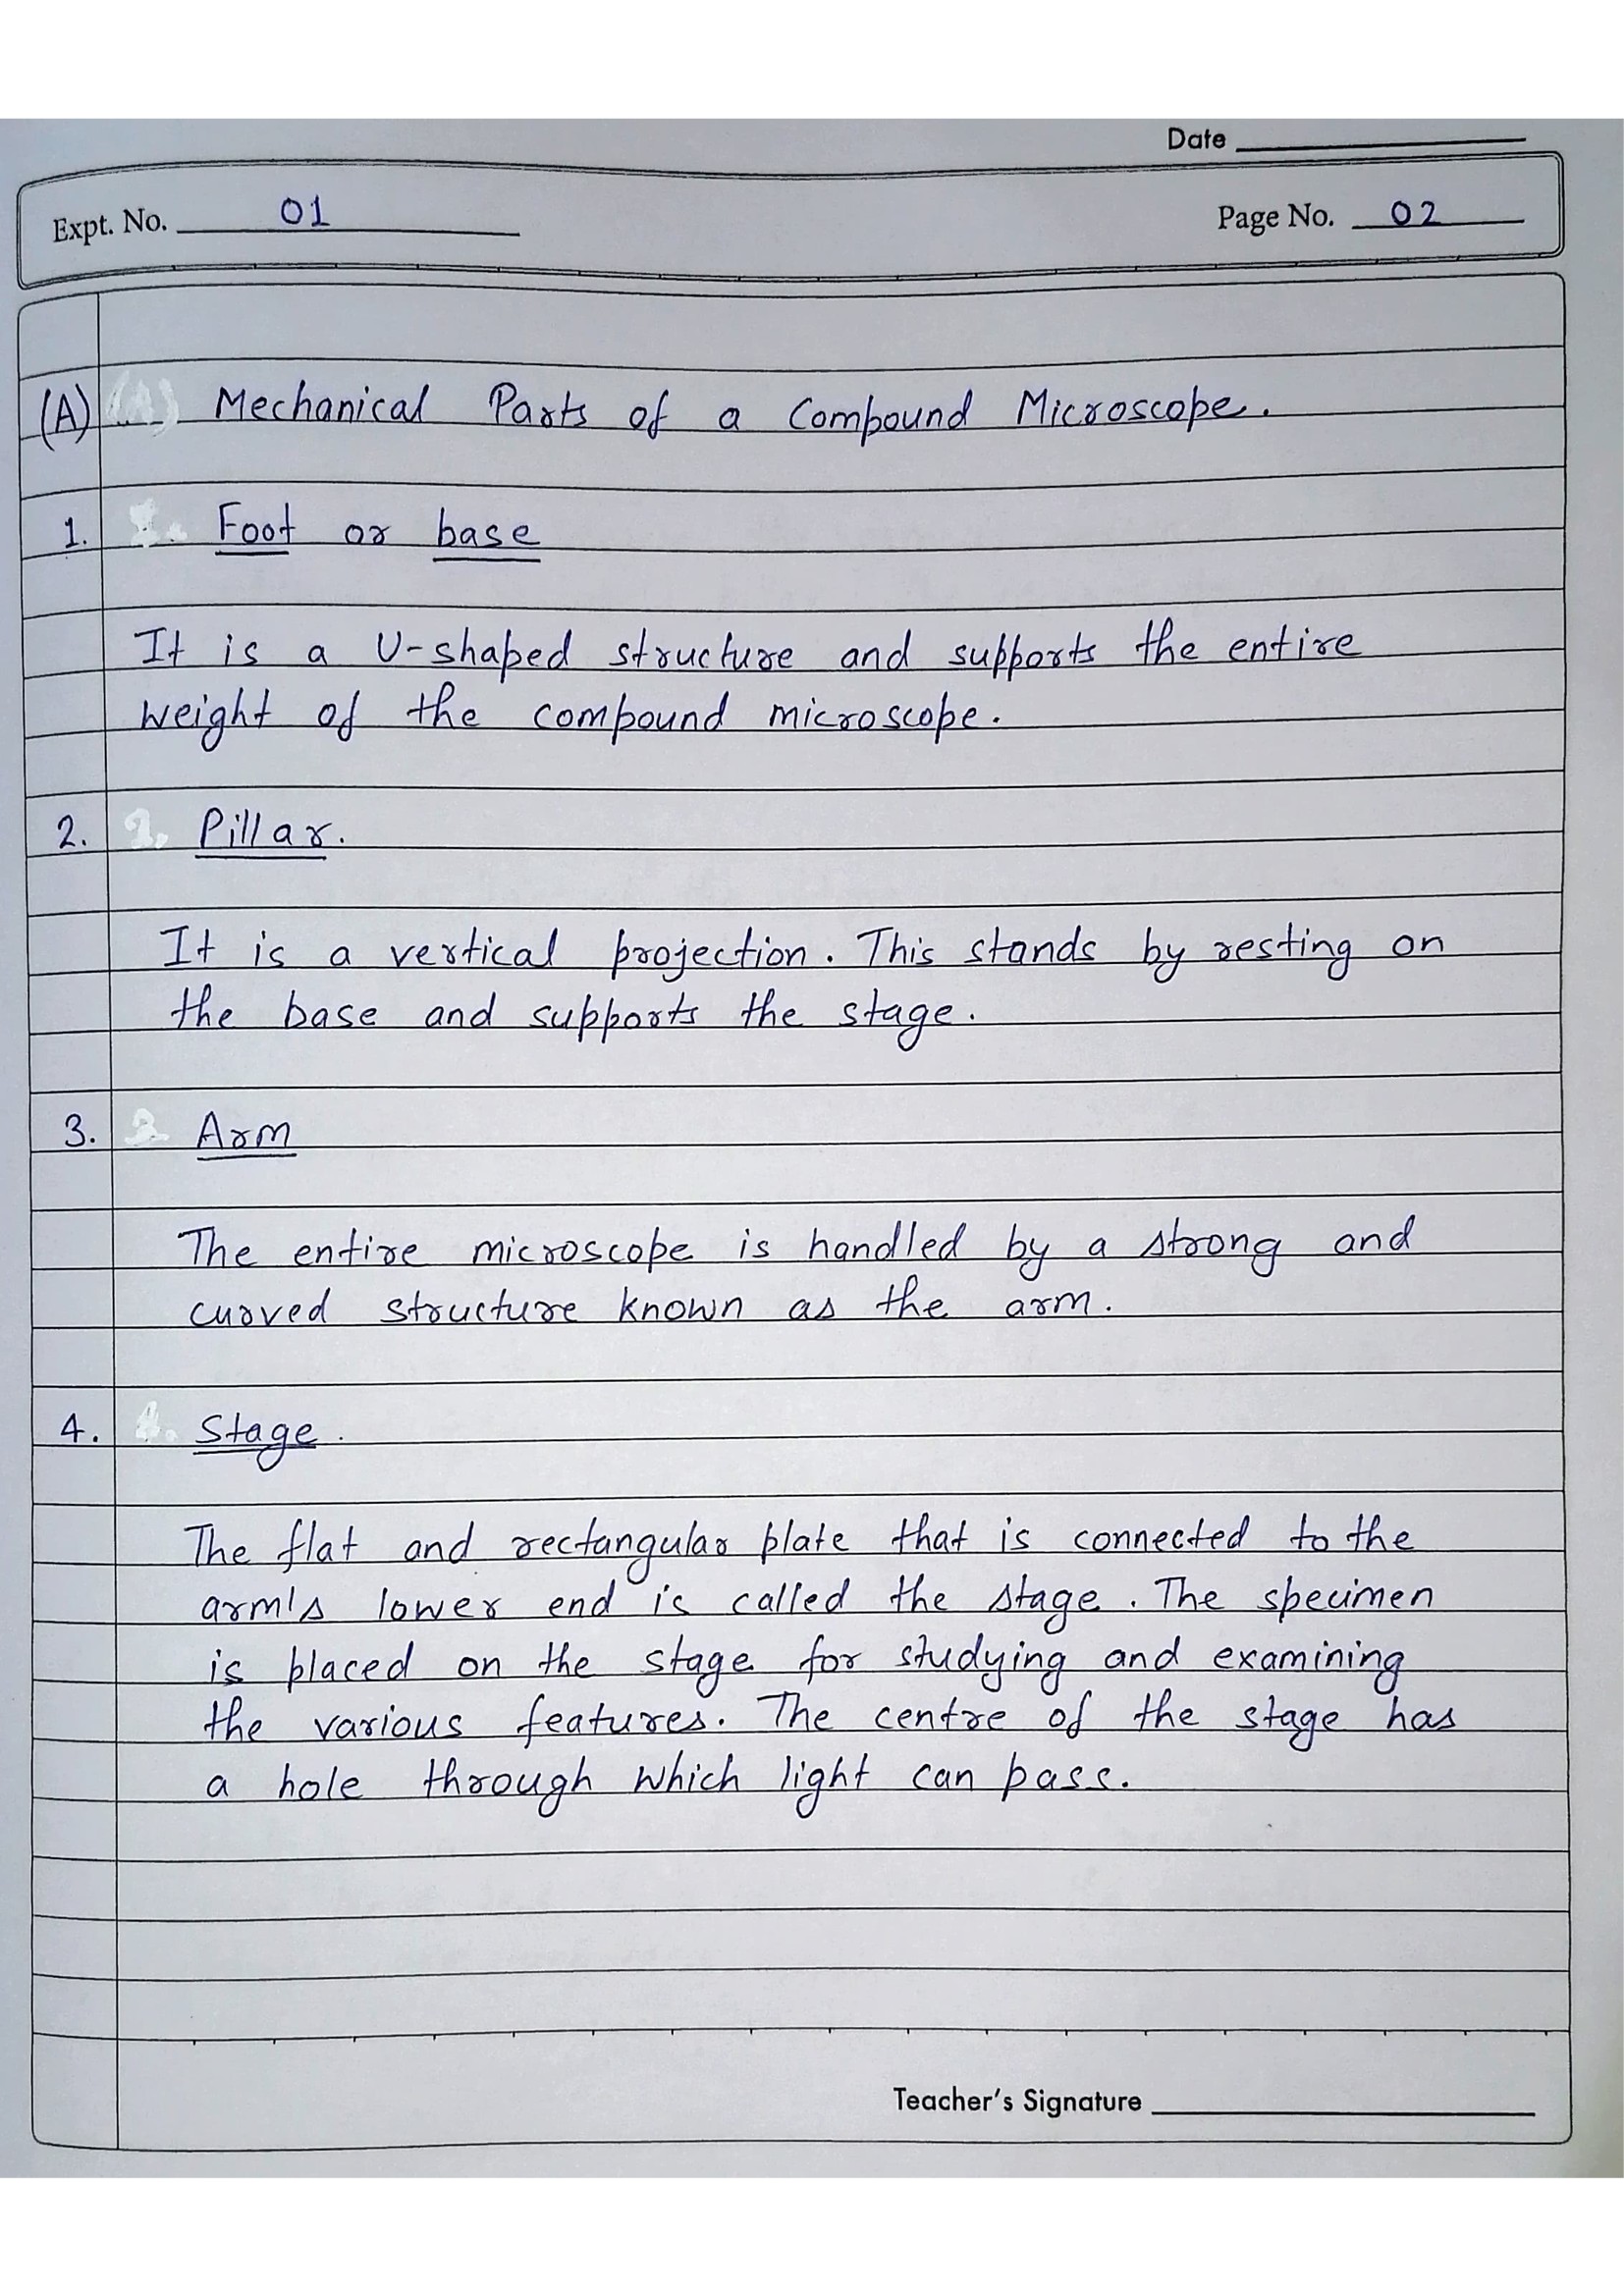 Date
Expt. No. 01
Page No. 02
(A) Mechanical Parts of a Compound Microscope.
1. Foot or base
It is a U-shaped structure and supports the entire
weight of the compound microscope.
2. Pillar.
It is a vertical projection. This stands by resting on
the base and supports the stage.
3. Arm
The entire microscope is handled by a strong and
curved structure known as the arm.
4. Stage.
The flat and rectangular plate that is connected to the
arm's lower end is called the stage. The specimen
is placed on the stage for studying and examining
the various features. The centre of the stage has
a hole through which light can pass.
Teacher's Signature